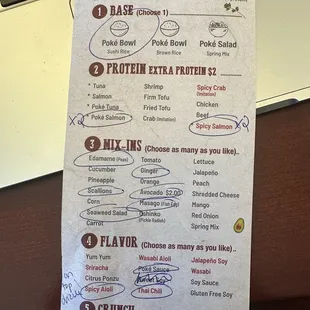 1 BASE (Choose 1)
Poké Bowl Poké Bowl Poké Salad
Sushi Rice Brown Rice Spring Mix
2 PROTEIN EXTRA PROTEIN $2
* Tuna Shrimp Spicy Crab (Imitation)
* Salmon Firm Tofu Chicken
* Poke Tuna Fried Tofu Beef
X2 * Poké Salmon Crab (Imitation) Spicy Salmon X2
3 MIX-INS (Choose as many as you like)..
Edamame (Peas) Tomato Lettuce
Cucumber Ginger Jalapeño
Pineapple Orange Peach
Scallions Avocado $2.00 Shredded Cheese
Corn Masago (Fish Egg) Mango
Seaweed Salad Oshinko (Pickle Radish) Red Onion
Carrot Spring Mix
4 FLAVOR (Choose as many as you like)..
Yum Yum Wasabi Aioli Jalapeño Soy
Sriracha Poké Sauce Wasabi
Citrus Ponzu Soy Sauce
Spicy Aioli Thai Chili Gluten Free Soy
on top
5 CRUNCH